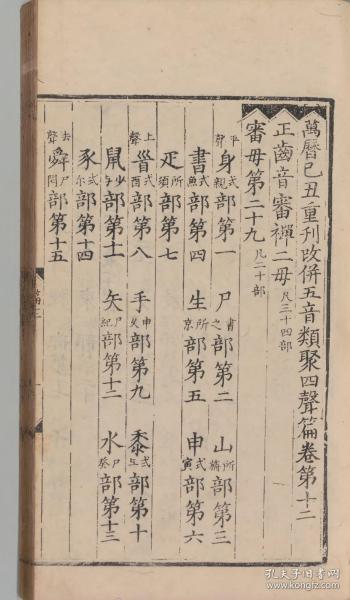 萬曆己丑重刊改併五音類聚四聲篇卷第十二
正齒音審禪二母凡三十四部
審母第二十九凡二十部
平聲身式親部第一 尸書之部第二 山所部第三
書式魚部第四 生所京部第五 申式寅部第六
疋所須部第七
上聲𩠐式酉部第八 手部第九 黍式部第十
鼠部第十一 矢尸部第十二 水尸癸部第十三
豕式尔部第十四
去聲舜尸閏部第十五
孔夫子旧书网